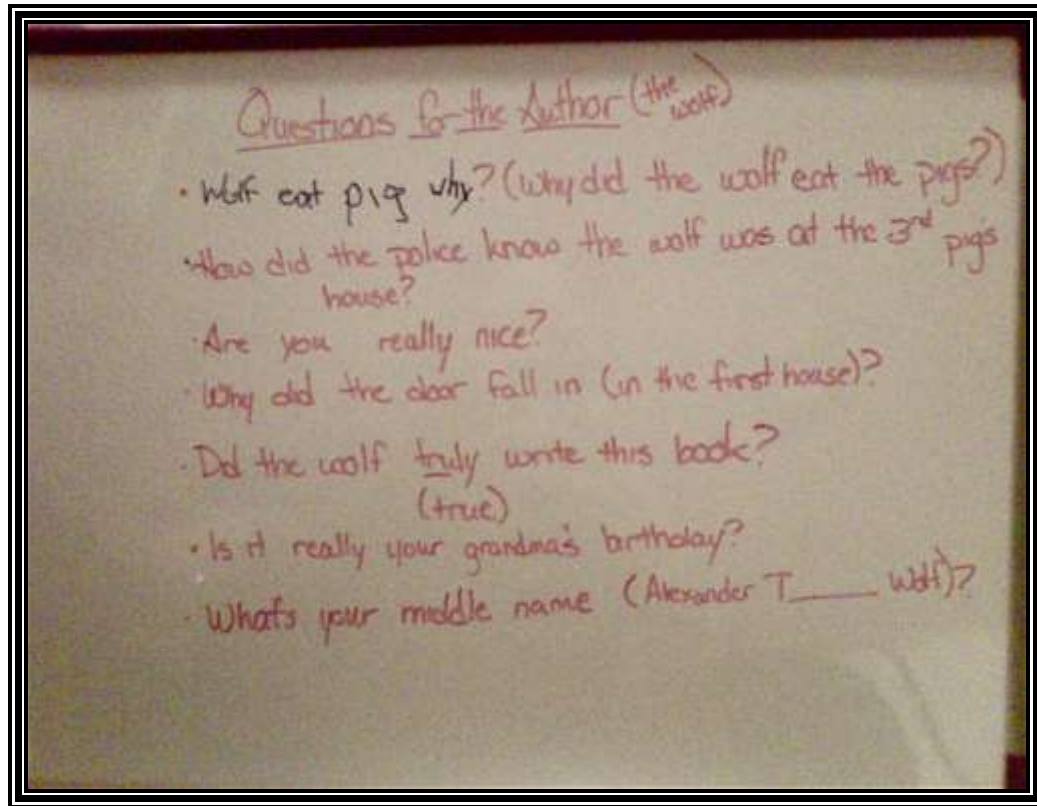 Questions for the Author (the wolf)
• Wolf eat pig why? (Why did the wolf eat the pigs?)
• How did the police know the wolf was at the 3rd pig's
house?
· Are you really nice?
· Why did the door fall in (in the first house)?
· Did the wolf truly write this book?
(true)
• Is it really your grandma's birthday?
· What's your middle name (Alexander T____ Wolf)?